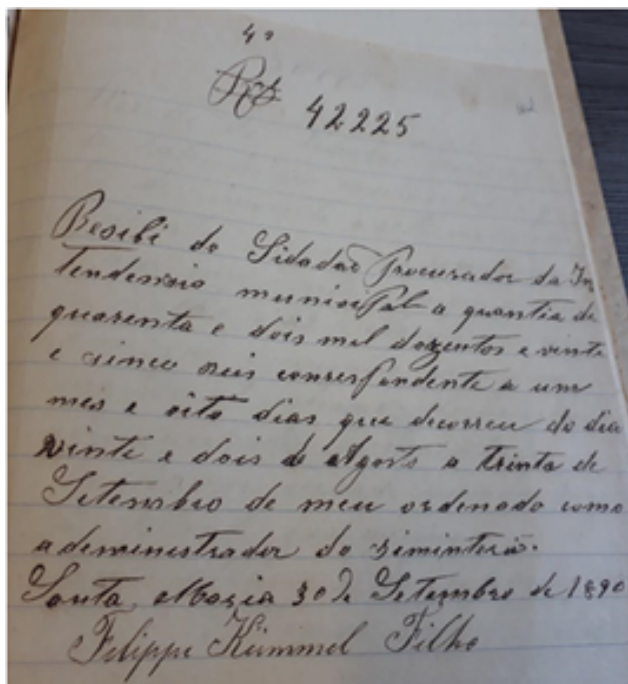 4º
Rs 42225
Resibi do Sidadão Procurador da In
tendensia municipal a quantia de
quarenta e dois mil dozentos e vinte
e sinco reis correspondente a um
mes e oito dias que decorreu do dia
vinte e dois de Agosto a trinta de
Setembro de meu ordenado como
administrador do siminterio.
Santa Maria 30 de Setembro de 1890
Felippe Kümmel Filho